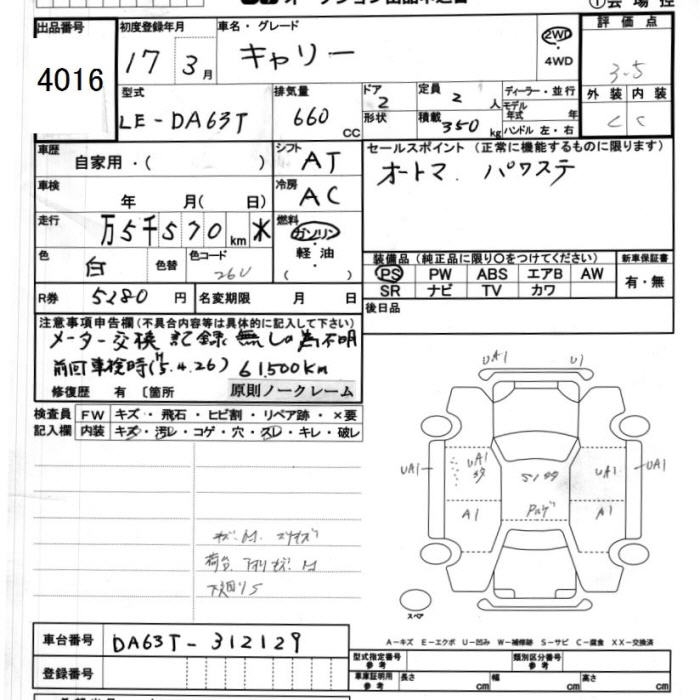 出品番号
4016
初度登録年月
17 3月
車名・グレード
キャリー
2WD
・
4WD
評価点
3.5
型式
LE-DA63T
排気量
660 CC
ドア
2
定員
2 人
形状
積載
350 kg
ディーラー・並行
モデル
年式 年
ハンドル 左・右
外装 内装
C C
車歴
自家用・( )
シフト
AT
セールスポイント (正常に機能するものに限ります)
オートマ. パワステ
車検
年 月( 日)
冷房
AC
走行
万5千570 km
燃料
ガソリン
・
軽油
・
( )
色
白
色替
色コード
26U
装備品 (純正品に限り○をつけてください)
PS PW ABS エアB AW
SR ナビ TV カワ
新車保証書
有・無
R券
5280 円
名変期限 月 日
後日品
注意事項申告欄 (不具合内容等は具体的に記入して下さい)
メーター交換 記録無しの為不明
前回車検時(H15.4.26) 61,500Km
修復歴 有 〔箇所
原則ノークレーム
検査員
記入欄
FW キズ・飛石・ヒビ割・リペア跡・×要
内装 キズ・汚レ・コゲ・穴・スレ・キレ・破レ
UA1 U1
UA1 UA1 UA1 UA1
A1 A1
スペア
A-キズ E-エクボ U-凹み W-補修跡 S-サビ C-腐食 XX-交換済
車台番号
DA63T-312129
登録番号
型式指定番号
参考
類別区分番号
参考
車庫証明用
参考
長さ cm 幅 cm 高さ cm